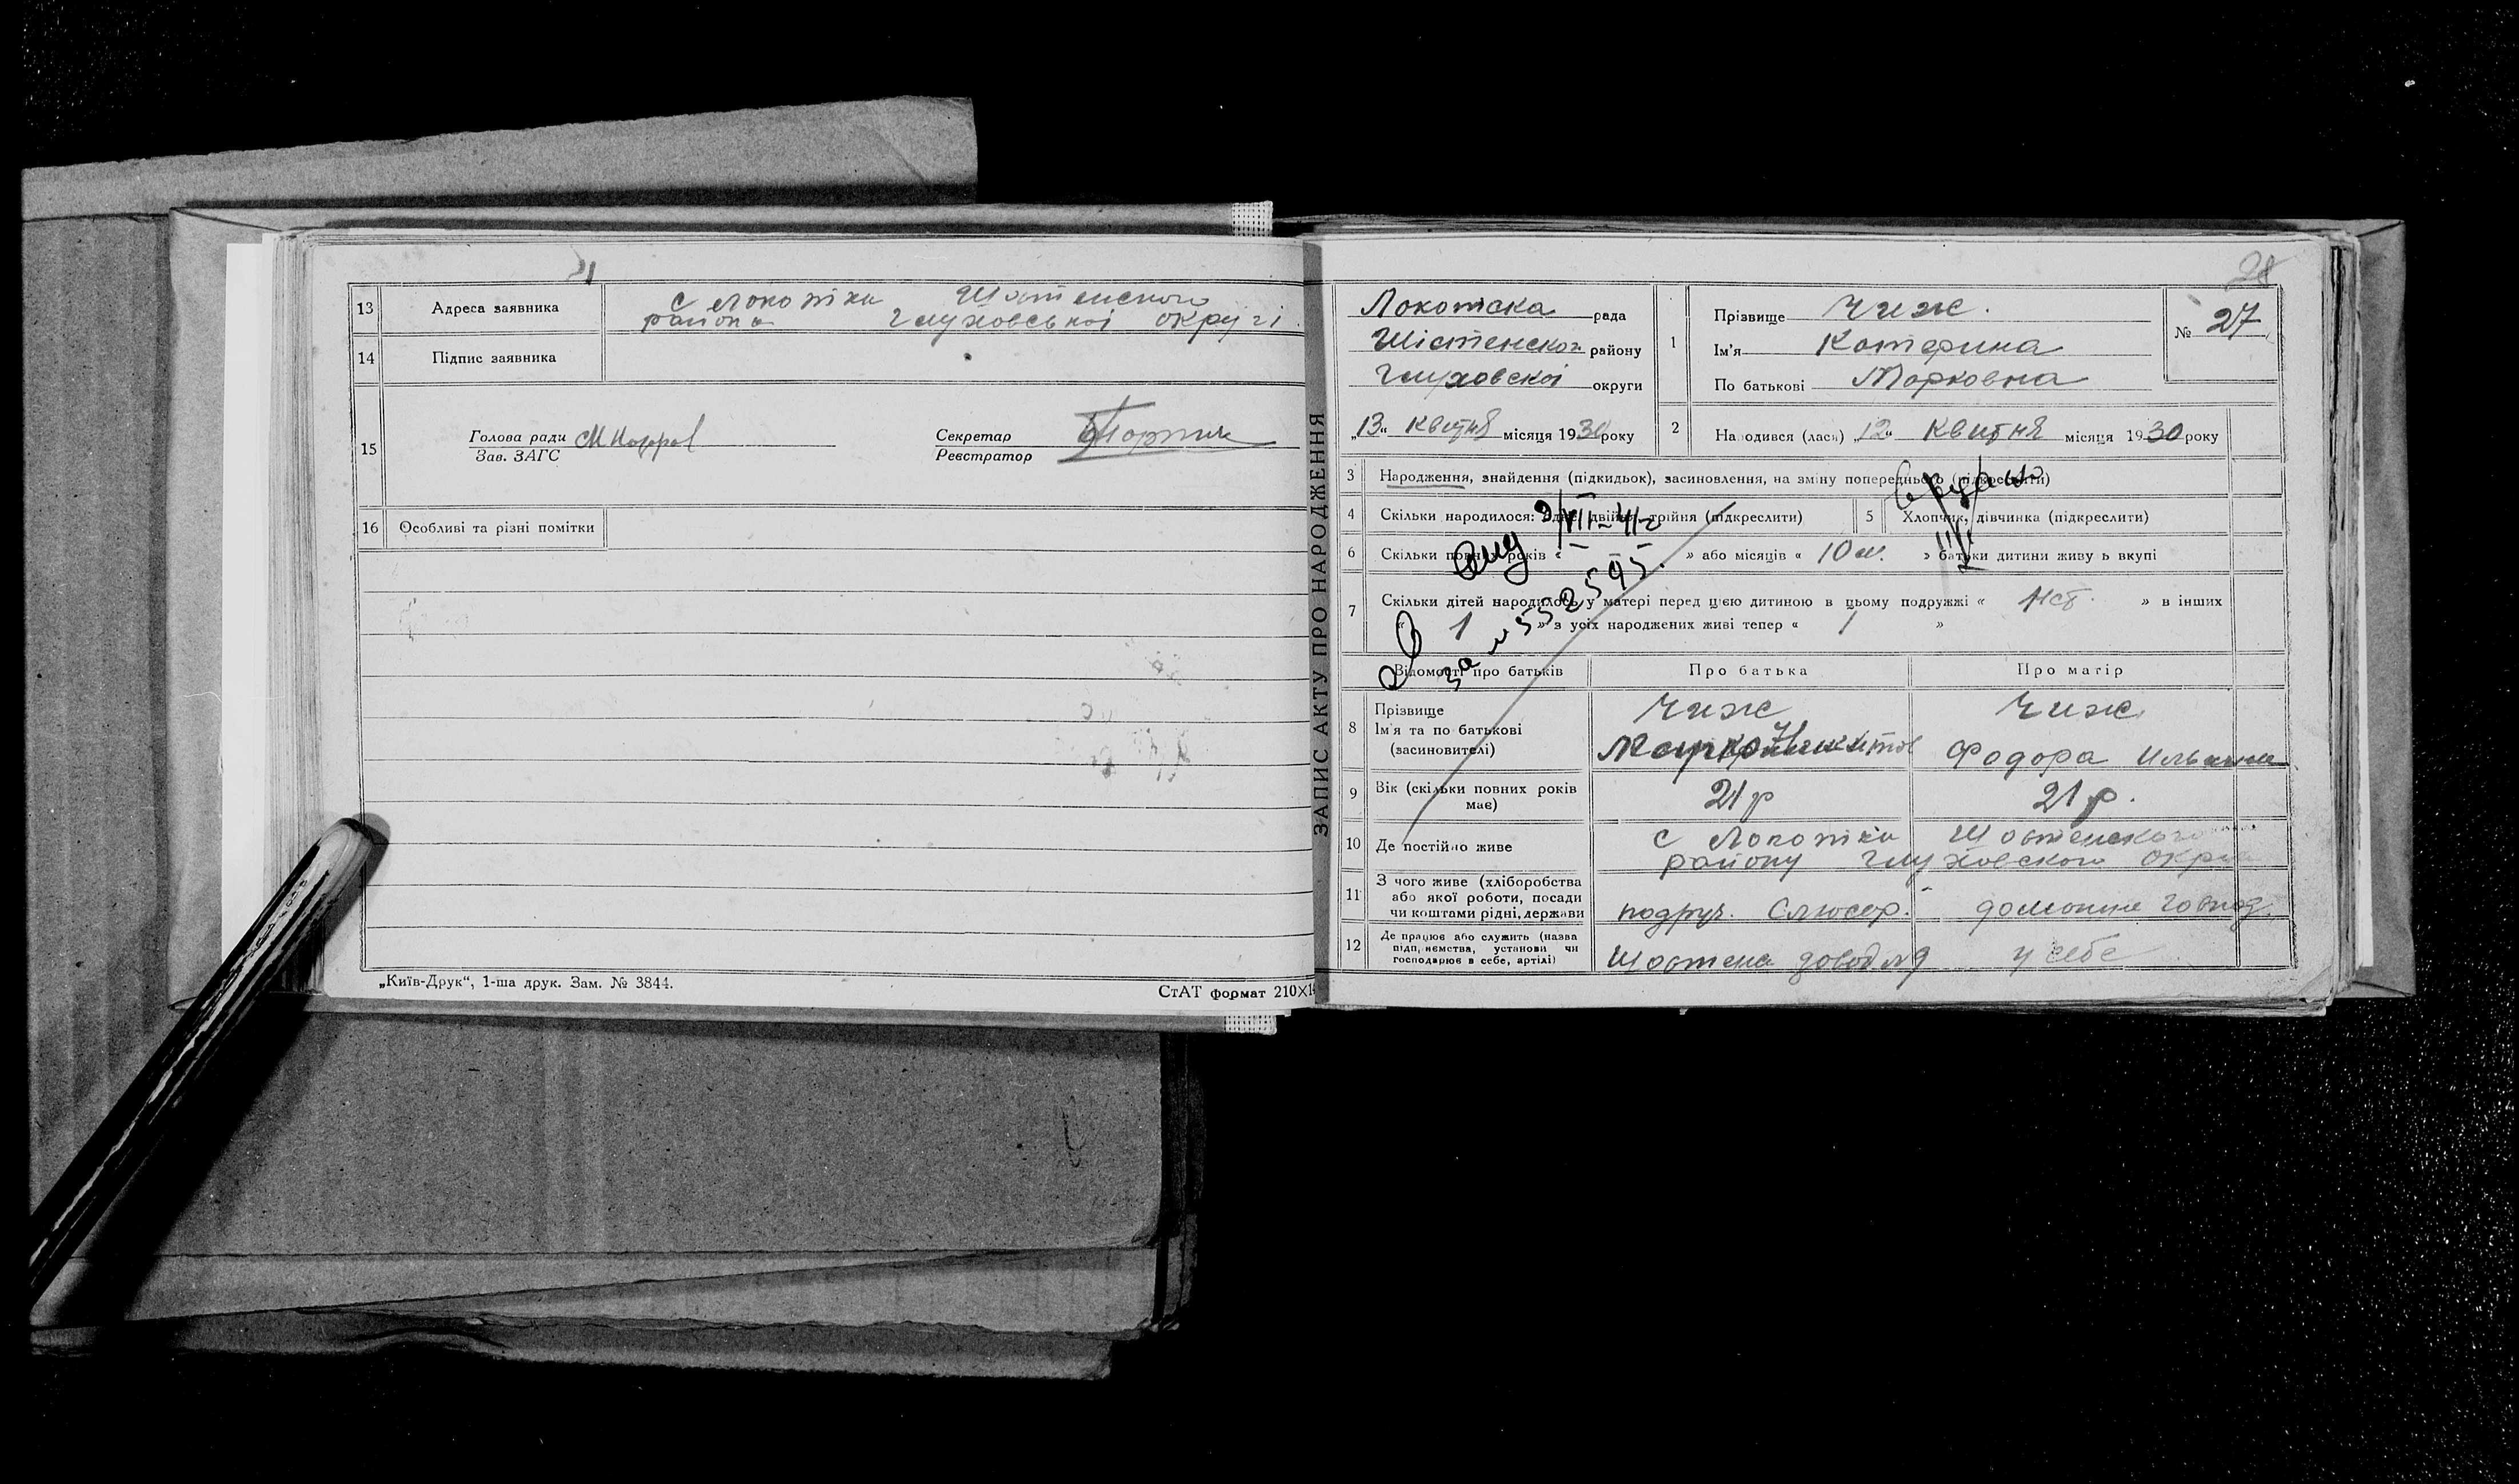 13 Адреса заявника с Локотки Шостенского
района Глуховської округі
14 Підпис заявника
15 Голова ради
Зав. ЗАГС
Секретар
Реєстратор
16 Особливі та різні помітки
„Київ-Друк“, 1-ша друк. Зам. № 3844.
СтАТ формат 210×14
ЗАПИС АКТУ ПРО НАРОДЖЕННЯ
28
Локотска рада
Шістенской району
Глуховскої округи
„13“ Квітня місяця 1930 року
1 Прізвище Чиж.
Ім'я Катерина
По батькові Марковна
№ 27
2 Народився (лася) „12“ Квитня місяця 1930 року
3 Народження, знайдення (підкидьок), засиновлення, на зміну попереднього (підкреслити)
4 Скільки народилося: одне, двійня, трійня (підкреслити)
5 Хлопчик, дівчинка (підкреслити)
6 Скільки повних років « — » або місяців « 10 м. » батьки дитини живуть вкупі
7 Скільки дітей народилось у матері перед цією дитиною в цьому подружжі « » в інших
« 1 » з усіх народжених живі тепер « 1 »
9/VII-41 г
за № 552595.
Відомості про батьків Про батька Про матір
8 Прізвище
Ім'я та по батькові
(засиновителі)
Чиж
Марко
Чиж
Федора
9 Вік (скільки повних років
має)
21 р
21 р.
10 Де постійно живе с Локотки Шостенского
району Глуховского округа
11 З чого живе (хліборобства
або якої роботи, посади
чи коштами рідні, держави
подруч. Слюсар.
домашне господ.
12 Де працює або служить (назва
підприємства, установи чи
господарює в себе, артілі)
Шостена
у себе